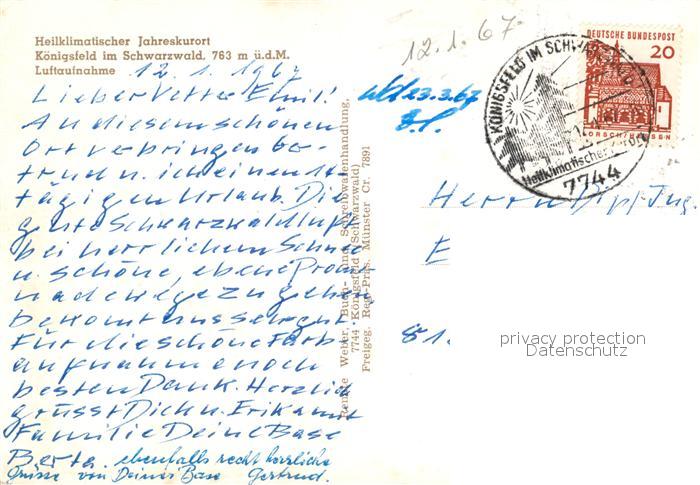 Heilklimatischer Jahreskurort
Königsfeld im Schwarzwald, 763 m ü.d.M.
Luftaufnahme
12.1.1967
Lieber Vetter Emil!
An diesem schönen
Ort verbringen Ge-
trud u. ich einen 1
tägigen Urlaub. Die
gute Schwarzwaldluft
bei herrlichem Schnee
u. schöne, ebene Prom
nadewege zu gehen
bekommt uns sehr gut
Für die schöne Farb-
aufnahme noch
besten Dank. Herzlich
grüsst Dich u. Erika mit
Familie Deine Base
Berta. ebenfalls recht herzliche
Grüsse von Deiner Base Gertrud.
Weber, Buch- und Schreibwarenhandlung,
7744 Königsfeld (Schwarzwald)
Freigeg. Reg-Präs. Münster Cr. 7891
12.1.67
23.3.67
DEUTSCHE BUNDESPOST
20
LORSCH/HESSEN
KÖNIGSFELD IM SCHWARZWALD
Heilklimatischer Kurort
7744
Herrn Dipl. Ing.
E
81.
privacy protection
Datenschutz